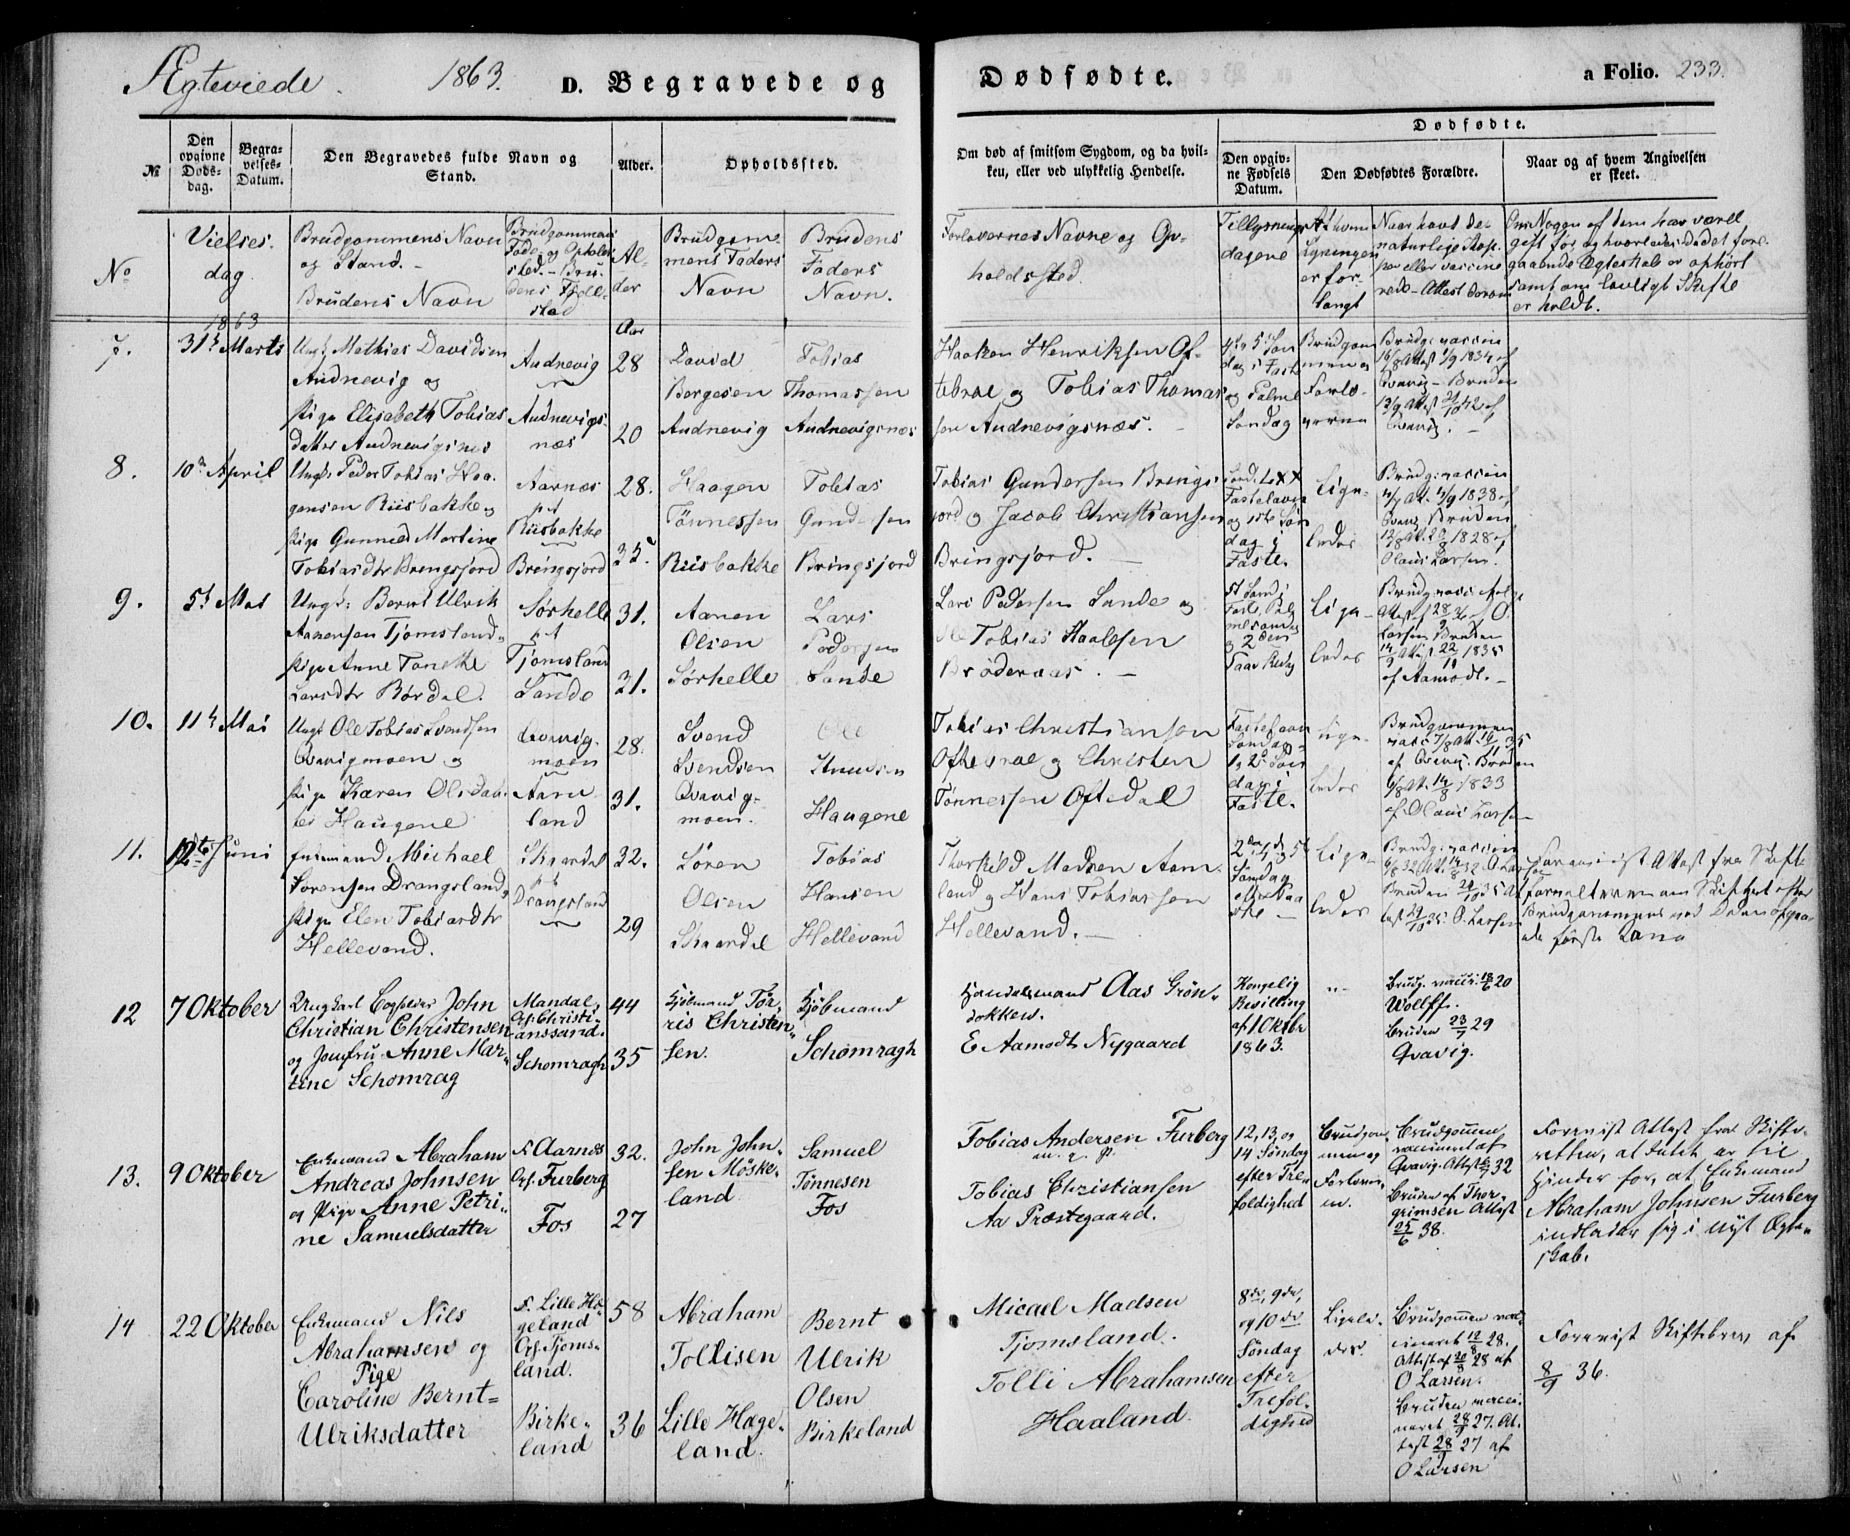 Ægteviede 1863. D. Begravede og Dødfødte. a Folio. 233.
№
Den opgivne Døds-dag.
Begra-velses-Datum.
Den Begravedes fulde Navn og Stand.
Alder.
Opholdssted.
Om død af smitsom Sygdom, og da hvil-
ken, eller ved ulykkelig Hendelse.
Dødfødte.
Den opgiv-ne Fødsels Datum.
Den Dødfødtes Forældre.
Naar og af hvem Angivelsen er skeet.
No
Vielses-
dag
Brudgommens Navn
og Stand.
Brudens Navn
Brudgommens
Føde og Opholds
sted. – Bru-
dens Føde-
sted
Al-
der
Brudgom-
mens Faders
Navn
Brudens
Faders
Navn.
Forlovernes Navne og Op-
holdssted.
Tillysnings
dagene
Af hvem
Lysningen
er for-
langt
Naar havt de
naturlige Kop-
per eller vaccine
rede – Attest derom
Om Nogen af dem har været
gift før og hvorledes det fore-
gaaende Ægteskab er ophørt
samt om lovligt Skifte
er holdt.
1863
Aar
7.
31te Marts
Ungk. Mathias Davidsen
Audnevig og
Pige Elisabeth Tobias
datter Audnevigsnes
Audnevig
Audnevigs-
næs
28
20
David
Børgesen
Audnevig
Tobias
Thomassen
Audnevigsnæs
Haaken Henriksen Of-
tebroe og Tobias Thomas
sen Audnevigsnæs.
4de og 5te Søn
dag i Faste
og Palme
Søndag
Brudgom
men og
Forlo-
verne
Brudg: vaccin
16/8 Att. 1/9 1834 af
Qvavig – Bruden
13/9 Att 21/10 42 af
Qvavig.
8.
10de April
Ungk. Peder Tobias Haa-
gensen Riisbakke og
Pige Gunnild Martine
Tobiasdtr Bringsjord
Aarnæs
pt
Riisbakke
Bringsjord
28.
35.
Haagen
Tønnessen
Riisbakke
Tobias
Gundersen
Bringsjord
Tobias Gundersen Brings-
jord og Jacob Christiansen
Bringsjord.
Fastelavn
og 1ste Søn
dag i
Faste.
Lige-
ledes
Brudg: vaccin
1838 af
Qvavig Bruden
1828 af
Olaus Larsen.
9.
5te Mai
Ungk: Bernt Ulrik
Aanensen Tjomsland,
Pige Anne Tonette
Larsdtr Børdal.
Sørhelle
pt
Tjomsland
Sande
31.
21.
Aanen
Olsen
Sørhelle
Lars
Pedersen
Sande
Lars Pedersen Sande og
Ole Tobias Haalesen
Brøderaas.
2den
Paaskedag
Lige-
ledes
Larsen Bruden
14/9 Att 22/11 1835
af Aamodt.
10.
11te Mai
Ungk Ole Tobias Svendsen
Qvavigmoen og
Pige Karen Olsdat-
ter Haugene
Qvavig-
moen
Aam-
land
28.
31.
Svend
Svendsen
Qvavig-
moen.
Ole
Knudsen
Haugene
Tobias Christiansen
Oftebroe og Christen
Tønnessen Oftedal
Fastelavn
Søndag
1 og 2 Søn
dag i
Faste.
Lige-
ledes
Brudgommen
vacc 7/8 Att. 16/11 35
af Qvavig. Bruden
6/8 Att. 14/8 1833
af Olaus Larsen
11.
12te Juni
Enkemand Michael
Sørensen Drangsland,
Pige Elen Tobiasdtr
Hellevand.
Skaardal
pt
Drangsland
32.
29
Søren
Olsen
Skaardal
Tobias
Hansen
Hellevand
Thorkild Madsen Aam-
land og Hans Tobiassen
Hellevand.
2den 4de og 5te
Søndag
efter Paa
ske
Lige-
ledes
Brudg: vaccin
6/8 32 Att. 14/8 32 O. Larsen
Bruden 21/10 35 At
test 29/10 35 O. Larsen
Forevist Attest fra Skifte
forvalteren om Skiftet efter
Brudgommens ved Døden opgaa-
ede første Kone
12
7 Oktober
Ungkarl Logholder John
Christian Christensen
og Jomfru Anne Mar-
tine Schomrag
Mandal,
Of. Christi-
anssand.
Schomragh
44
35
Kjøbmand Tør-
ris Christen-
sen.
Kjøbmand
Schomragh
Handelsmand Aas Grøn-
dokken.
E Aamodt Nygaard
Kongelig
Bevilling
af 1 Oktbr
1863.
"
Brudg. vacci: 18/6 20
Wolff.
Bruden 23/7 29
Qvavig.
13.
9 Oktober
Enkemand Abraham
Andreas Johnsen
og Pige Anne Petri-
ne Samuelsdatter
F. Aarnes
Of. Furberg
Fos
32.
27
John John-
sen Møske-
land
Samuel
Tønnesen
Fos
Tobias Andersen Furberg
Tobias Christiansen
Aa Præstegaard.
12, 13, og
14 Søndag
efter Tre-
foldighed
Brudgom-
men og
Forlover-
en.
Brudgommen
vaccineret af
Qvavig. Attest 32
Bruden af Thor-
grimsen Attest
25/6 38.
Forevist Attest fra Skifte-
retten, at Intet er til
Hinder for, at Enkemand
Abraham Johnsen Furberg
indlader sig i nyt Ægte-
skab.
14
22 Oktober
Enkemand Nils
Abrahamsen og
Pige
Caroline Bernt-
Ulriksdatter
F. Lille Hæ-
geland
Of. Tjoms-
land.
Birke-
land
58
36
Abraham
Tollisen
Lille Hæge-
land.
Bernt
Ulrik
Olsen
Birkeland
Micael Madsen
Tjomsland.
Tolli Abrahamsen
Haaland.
8de, 9de,
og 10de
Søndag
efter
Trefol-
dighed
Ligele-
des.
Brudgommen vac-
cineret 12/8 28.
Attest af 20/8 28 af
O Larsen.
Bruden vacci-
neret 28/9 27. At-
test 28/9 27 af
O Larsen
Forevist Skiftebrev af
8/9 36.